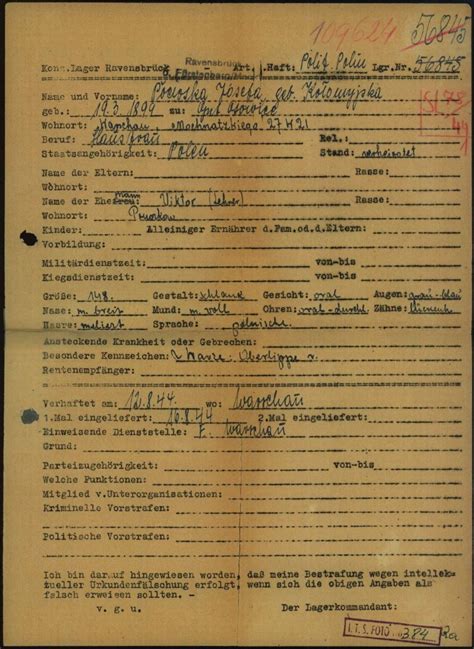 109624 56845
Ravensbrück
Konz.Lager Ravensbrück Art: Haft: Polit. Polin Lgr.Nr. 56845
Name und Vorname: Józefa geb. Kołomyjska
geb.: 19.3.1899 zu: Gut Osowiec
Wohnort: Warschau, Mochnatzkiego 27 4 21
Beruf: Hausfrau Rel.:
Staatsangehörigkeit: Polen Stand: verheiratet
Name der Eltern: Rasse:
Wohnort:
Name der Ehefrau: mann Viktor (Lehrer) Rasse:
Wohnort:
Kinder: Alleiniger Ernährer d.Fam.od.d.Eltern:
Vorbildung:
Militärdienstzeit: von-bis
Kiegsdienstzeit: von-bis
Größe: 148. Gestalt: schlank Gesicht: oval Augen: grau-blau
Nase: m. breit Mund: m. voll Ohren: oval-durchl. Zähne:
Haare: meliert Sprache: polnisch
Ansteckende Krankheit oder Gebrechen:
Besondere Kennzeichen: Warze Oberlippe r.
Rentenempfänger:
Verhaftet am: 12.8.44 wo: Warschau
1.Mal eingeliefert: 16.8.44 2.Mal eingeliefert:
Einweisende Dienststelle: F. Warschau
Grund:
Parteizugehörigkeit: von-bis
Welche Funktionen:
Mitglied v.Unterorganisationen:
Kriminelle Vorstrafen:
Politische Vorstrafen:
Ich bin darauf hingewiesen worden, daß meine Bestrafung wegen intellek-
tueller Urkundenfälschung erfolgt, wenn sich die obigen Angaben als
falsch erweisen sollten. -
v. g. u. Der Lagerkommandant:
I.T.S. FOTO 384